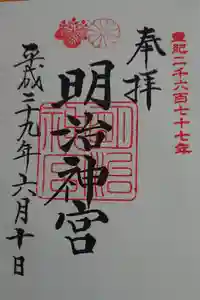 皇紀二千六百七十七年
奉拝
明治神宮
平成二十九年六月十日